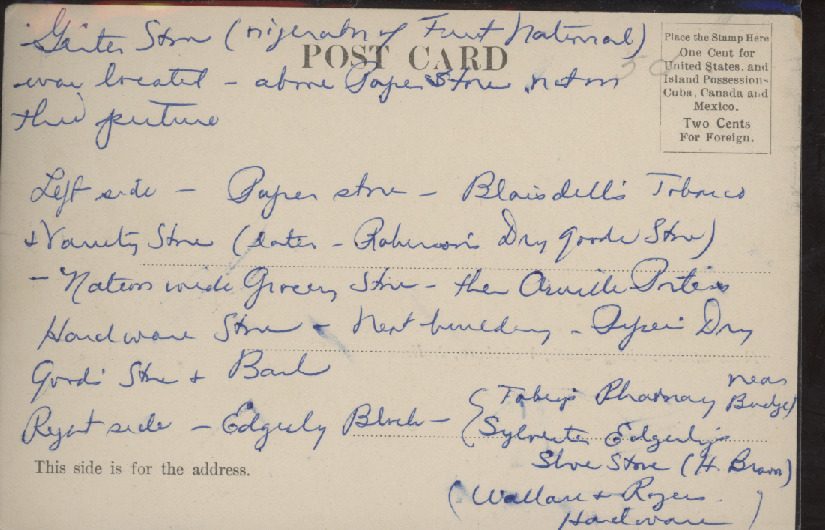 Store (originators of First National)
POST CARD
was located - above Paper Store not on
this picture
Place the Stamp Here
One Cent for
United States, and
Island Possessions
Cuba, Canada and
Mexico.
Two Cents
For Foreign.
Left side - Paper store - Blaisdell's Tobacco
& Variety Store (later - Roberson's Dry Goods Store)
- Nation wide Grocery Store - then Orville Porter's
Hardware Store - Next building - Dry
Goods Store & Bank
Right side - Edgerly Block - { Tobey's Pharmacy near Bridge)
Sylvester Edgerly's
Shoe Store (H. Brown)
(Wallace & Rogers
Hardware)
This side is for the address.